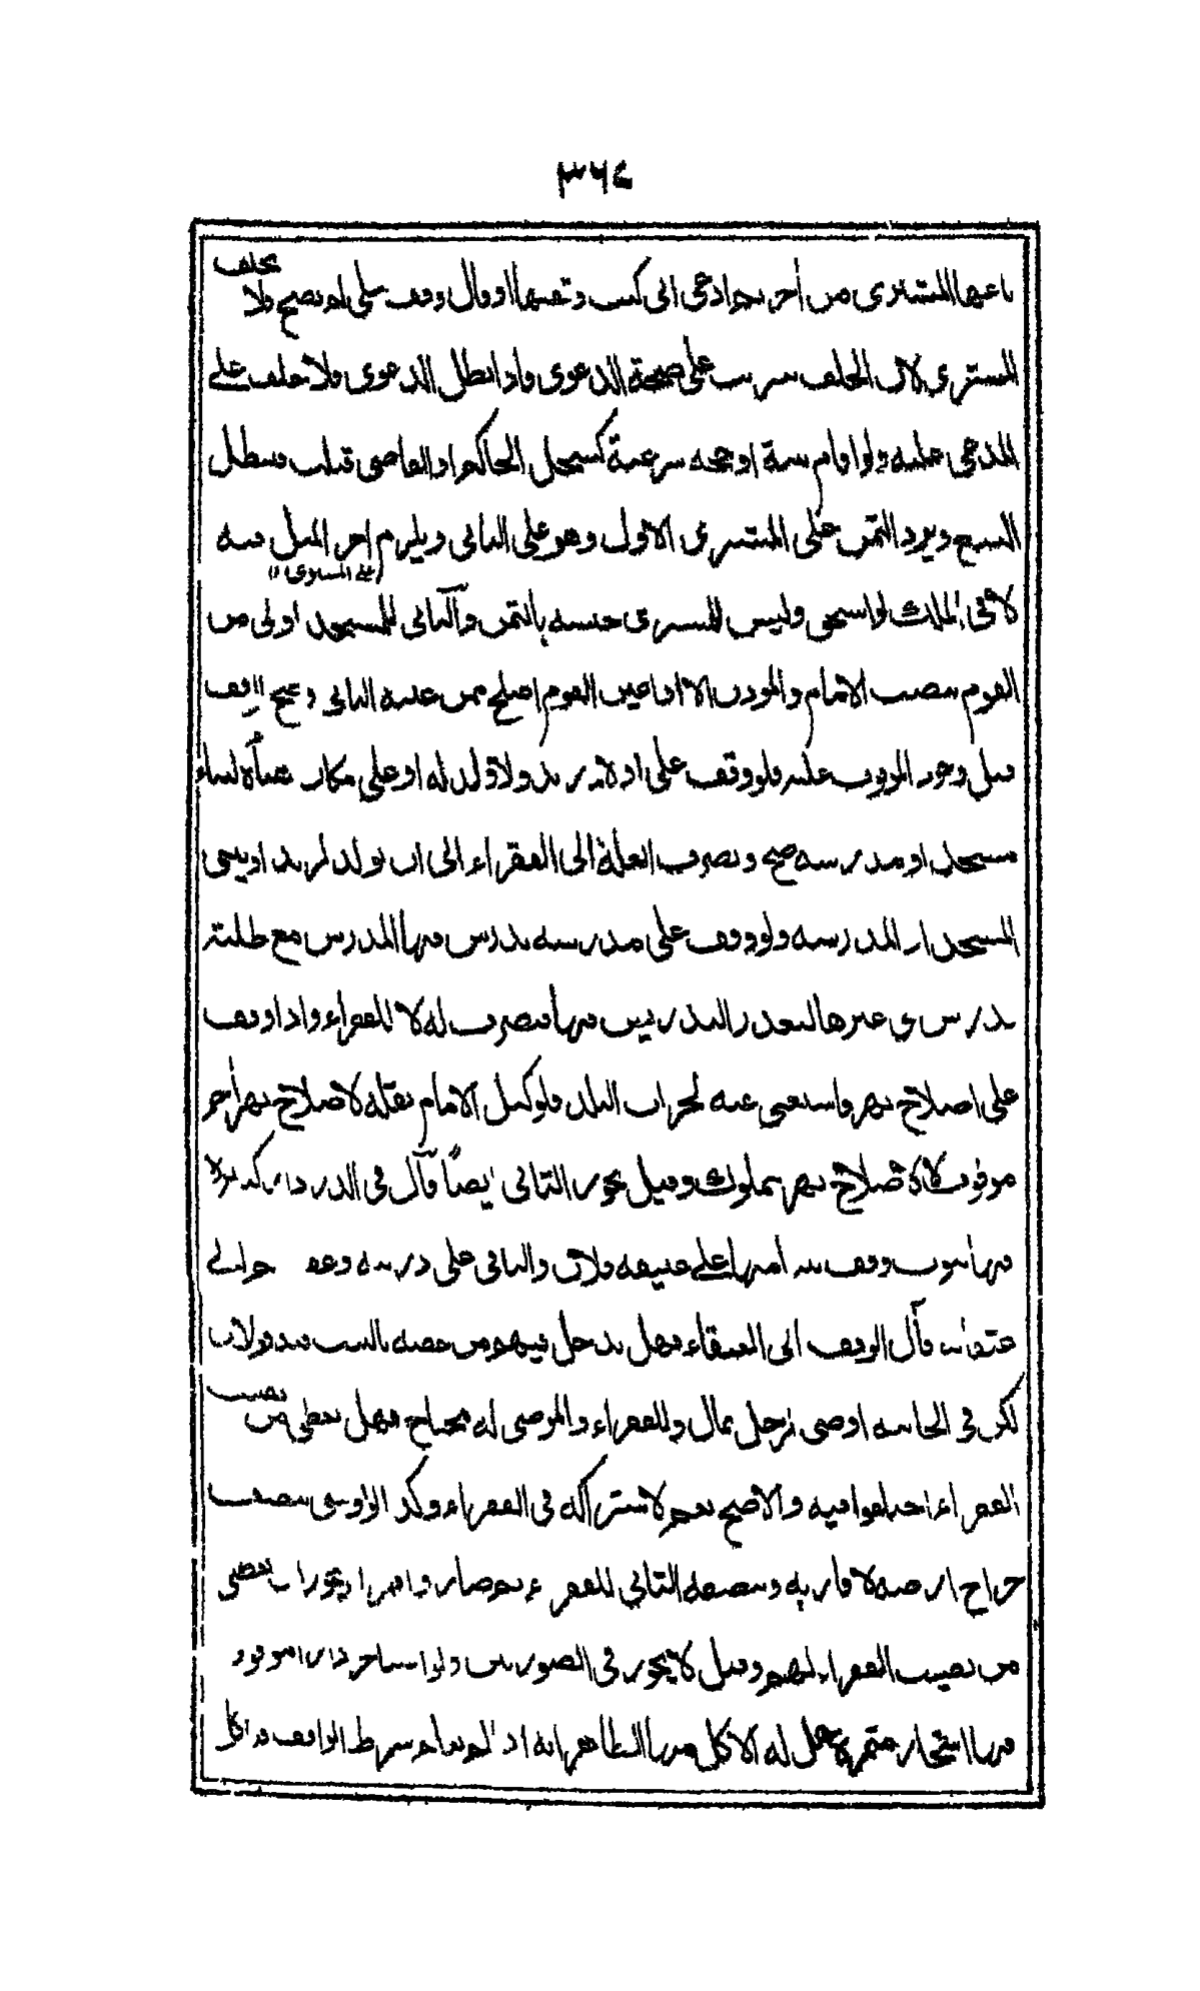 ٣٦٤
باعها المشترى من آخر ثم ادعى انى كنت وقفتها او قال وقف على لم تصح فلا يحلف
المشترى لان الحلف يترتب على صحة الدعوى واذا بطل الدعوى فلا تحلف على
المدعى عليه ولو اقام بينة او حجة شرعية كسجل الحاكم او القاضى قبلت فيبطل
البيع ويرد الثمن على المشترى الاول وهو على الثانى ويلزم اجر المثل فيه
على المشترى
لا فى الملك لو استحق وليس للمشترى حبسه بالثمن والبانى للمسجد اولى من
القوم بنصب الامام والمؤذن الا اذا عين القوم اصلح ممن عينه البانى وصح الوقف
قبل وجود الموقوف عليه فلو وقف على اولاد زيد ولا ولد له او على مكان هيأه لبناء
مسجد او مدرسه صح وتصرف الغلة الى الفقراء الى ان يولد لزيد او يبنى
المسجد او المدرسه ولو وقف على مدرسه يدرس فيها المدرس مع طلبته
فدرس فى غيرها لتعذر التدريس فيها تصرف له لا للفقراء واذا وقف
على اصلاح نهر واستغنى عنه لخراب البلد فلوكيل الامام نقله لاصلاح نهر آخر
موقوف لاصلاح نهر مملوك وقيل يجوز الثانى ايضا قال فى الدرر دار كبيرة
فيها بيوت وقف بيتا منها على عتيقه فلان والباقى على ذريته وعقبه ثم على
عتقائه فآل الوقف الى العتقاء فهل يدخل فيهم من خصه بالبيت فيه قولان
لكن فى الخانية اوصى لرجل بمال وللفقراء والموصى له محتاج فهل يعطى من نصيب
الفقراء اختلفوا فيه والاصح نعم لاشتراكه فى الفقراء وكذا لو اوصى بنصف
خراج ارضه لاقاربه ونصفه الثانى للفقراء ثم صار وا فقراء يجوز ان يعطى
من نصيب الفقراء لهم وقيل لا يجوز فى الصورتين ولو استأجر دارا موقوفة
فيها اشجار مثمرة هل له الاكل منها الظاهر انه اذا لم يعلم شرط الواقف لم ياكل